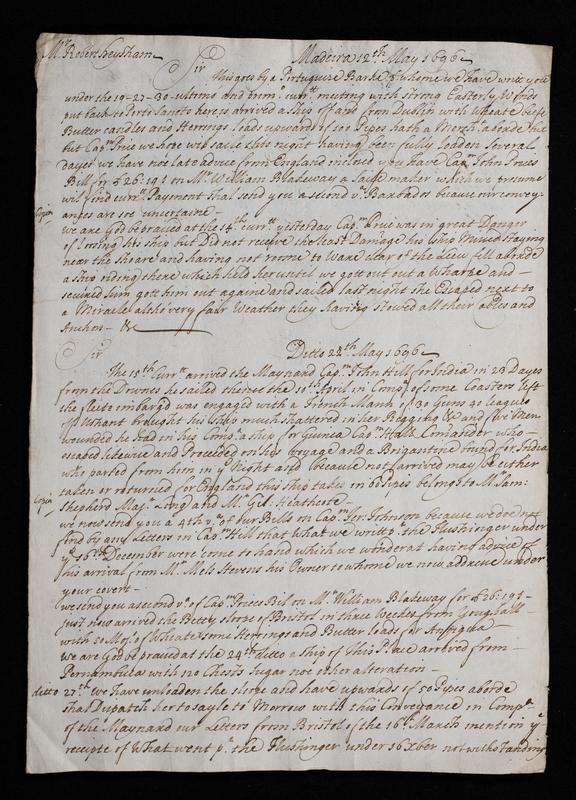 Mr Robert Heysham
Madeira 12th May 1696
Sir
This goes by a Portuguze Barke by whome we have writt you
under the 19-27-30 ultimo and currtt meeting with strong Easterly Winds
put back to Porto Santo here is arrived a ship off and from Dublin with Wheate beife
Butter candles and Herrings loads upward of 100 Pipes hath a Mercht aborde her
but Capm Prue we hope will saile this night having been fully loaden several
dayes we have not late advice from England inclosed you have Capm John Prues
Bill for £26:19:1 on Mr William Blakeway a saile maker which we presume
will find currt Payement shal send you a second va Barbados because our convey-
ances are soe uncertaine-
Copia
we are God be praised at the 14th currtt yesterday Capm Prue was in great Danger
of Loosing his ship but Did not receive the least Damage his ship Missed staying
near the shoare and having not roome to Ware clear of the Lieu fell aborde
a ship riding there which held her until we gott out a Wharpe and-
secured him gott him out againe and sailed last night she Escaped next to
a Miracle altho very fair Weather they having stowed all their and
Anchor-&c
Sir
Ditto 28th May 1696
The 15th Currtt arrived the Maynard Capm John Hill for India in 23 Dayes
from the Downes he sailed thence the 10th April in Compa of some Coasters left
the fleite embarg'd was engaged with a French Mann of 30 Guns 40 leagues
off Ushant brought his ship much shattered in her Rigging &c and five Men
wounded he had in his Compa a ship for Guinea Capm Hall Comander who-
escaped likewise and Proceeded on her Voyage and a Brigantine bound for India
who parted from them in ye Night and because not arrived may be either
taken or returned for England this ship takes in 60 Pipes belongs to Mr Sam:
Shepherd Maj: Long and Mr Gil: Heathcote-
Copia
we now send you a 4th va of our Bills on Capm Jer: Johnson because we doe not
find by any Letters in Capm Hill that what we writt pr the Flushinger under
ye 16th December were come to hand which we wonder at having advice of
his arrival from Mr Mels Stevens his Owner to whome we now addresse under
your covert-
we send you a second va of Capm Prues Bil on Mr William Blakeway for £26:19:1-
just now arrived the Betty sloope of Bristol in three Weekes from Youghall-
with 20 Mos: of Wheate some Herrings and Butter loads for Antigua-
we are God be praised at the 24th ditto a ship of this Place arrived from-
Pernambuca with no Chests Sugar not other alteration-
ditto 27th we have unloaden the sloope and have upwards of 50 Pipes aborde
shal Dispatch her to sayle to Morrow with this Conveyance in Compa
of the Maynard our Letters from Bristol of the 16th March mention ye
receipte of What went pr the Flushinger under 16 Xber notwithstanding